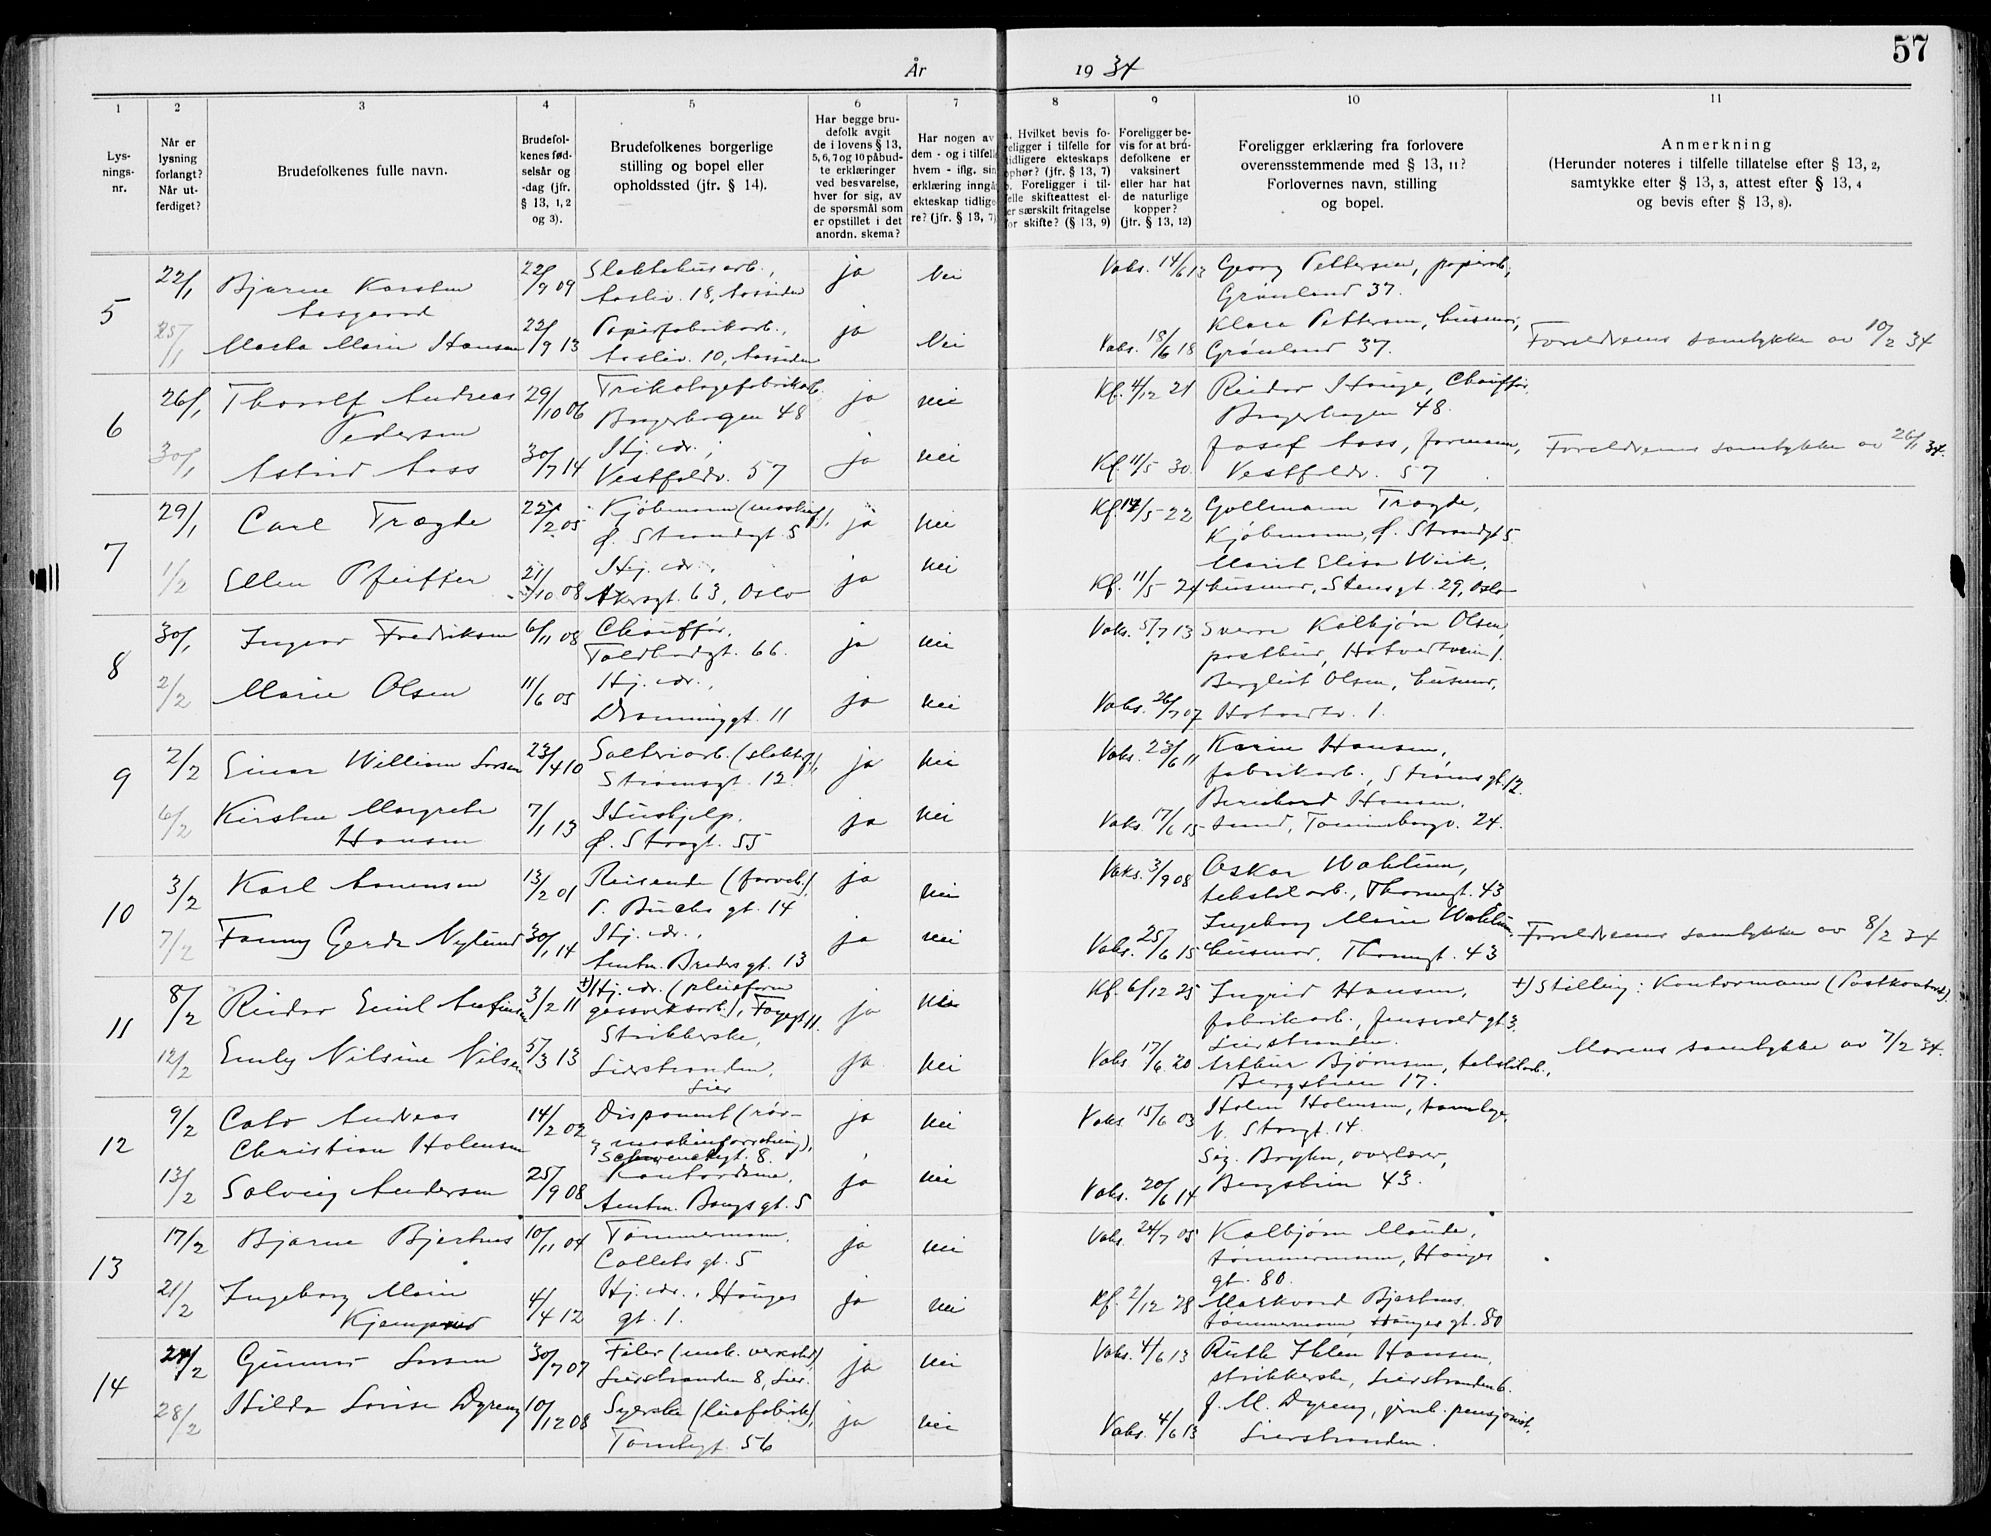 57
År 1934
1 2 3 4 5 6 7 8 9 10 11
Lys-
nings-
nr.
Når er
lysning
forlangt?
Når ut-
ferdiget?
Brudefolkenes fulle navn.
Brudefol-
kenes fød-
selsår og
-dag (jfr.
§ 13, 1, 2
og 3).
Brudefolkenes borgerlige
stilling og bopel eller
opholdssted (jfr. § 14).
Har begge bru-
defolk avgit
de i lovens § 13,
5, 6, 7 og 10 påbud-
te erklæringer
ved besvarelse,
hver for sig, av
de spørsmål som
er opstillet i det
anordn. skema?
Har nogen av
dem - og i tilfelle
hvem - iflg. sin
erklæring inngå
ekteskap tidlige
re? (jfr. § 13, 7)
. Hvilket bevis fo-
religger i tilfelle for
tidligere ekteskaps
ophør? (jfr. § 13, 7)
. Foreligger i til-
felle skifteattest el-
er særskilt fritagelse
for skifte? (§ 13, 9)
Foreligger be-
vis for at bru-
defolkene er
vaksinert
eller har hat
de naturlige
kopper?
(jfr. § 13, 12)
Foreligger erklæring fra forlovere
overensstemmende med § 13, 11?
Forlovernes navn, stilling
og bopel.
Anmerkning
(Herunder noteres i tilfelle tillatelse efter § 13, 2,
samtykke efter § 13, 3, attest efter § 13, 4
og bevis efter § 13, 8).
5
22/1 Bjarne Karsten 22/9 09 Slaktehusarb., ja Nei Vaks. 14/6 13 Georg Pettersen, papirarb.,
Aasgaard Aasliv. 18, Aassiden Grønland 37.
25/1 Marta Marie Hansen 22/9 13 Papirfabrikarb., ja Nei Vaks. 18/6 18 Klara Pettersen, husmor,
Aasliv. 10, Aassiden Grønland 37. Foreldrenes samtykke av 10/2 34
6
26/1 Thorolf Andreas 29/10 06 Trikotagefabrikarb. ja nei Kf. 4/12 21 Reidar Hauge, Chauffør,
Pedersen Bragerhagen 48 Bragerhagen 48.
30/1 Astrid Aass 30/7 14 Hj. vær., ja nei Kf. 11/5 30 Josef Aass, formann,
Vestfoldv. 57 Vestfoldv. 57 Foreldrenes samtykke av 26/1 34.
7
29/1 Carl Trægde 22/2 05 Kjøbmann ja nei Kf. 14/5-22 Gollmann Trægde,
Ø. Strandgt. 5 Kjøbmann, Ø. Strandgt 5.
1/2 Ellen Pfeiffer 21/10 08 Hj. vær., ja nei Kf. 11/5-24 Marit Elisa Wiik,
Akersgt. 63, Oslo husmor, Stensgt. 29, Oslo
8
30/1 Ingvar Fredriksen 6/11 08 Chauffør, ja nei Vaks. 5/7 13 Sverre Kolbjørn Olsen,
Toldbodgt. 66. postbud, Hotvedtveien 1.
2/2 Marie Olsen 11/6 05 Hj. vær., ja nei Vaks. 26/7 07 Bergliot Olsen, husmor,
Dronninggt. 11 Hotvedtv. 1.
9
2/2 Einar William Larsen 23/4 10 Salteriarb. ja nei Vaks. 23/6 11 Karin Hansen,
Strømsgt. 12. fabrikarb., Strømsgt. 12.
6/2 Kirsten Margrethe 7/1 13 Hushjelp, ja nei Vaks. 17/6 15 Bernhard Hansen,
Hansen Ø. Storgt. 55 smed, 24.
10
3/2 Karl Aanensen 13/2 01 Reisende ja nei Vaks. 3/9 08 Oskar Wahlum,
P. Buchs gt. 14 tekstilarb., Thornegt. 43
7/2 Fanny Gerda Nylund 30/1 14 Hj. vær., ja nei Vaks. 25/6 15 Ingeborg Marie Wahlum,
Amtm. Breders gt. 13 husmor, Thornegt. 43 Foreldrenes samtykke av 8/2 34
11
8/2 Reidar Emil 3/2 11 +) Hj. vær. ja nei Kf. 6/12 25 Ingrid Hansen, +) Stilling: Kontormann (Postkontoret).
fabrikarb., gt. 3.
Lierstranden.
12/2 Emly Nilsine Nilsen 5/3 13 Strikkerske, ja. nei Vaks 17/6 20 Arthur Bjørnsen, tekstilarb.,
Lierstranden, Bergstien 17. Morens samtykke av 7/2 34.
Lier
12
9/2 Cato Andreas 14/2 02 Disponent (rør- ja nei Vaks 15/6 03 Holm Holmsen, tannlege,
Christian Holmsen & maskinforretning), N. Storgt. 14.
Schwenckegt. 8.
13/2 Solveig Andersen 25/9 08 Kontordame, ja nei Vaks. 20/6 14 Sig. overlærer,
Amtm. Bangs gt. 5 Bergstien 43.
13
17/2 Bjarne Bjerknes 10/11 04 Tømmermann, ja nei Vaks. 24/7 05 Kolbjørn
Collets gt. 5 tømmermann, Hauges
gt. 80.
21/2 Ingeborg Marie 4/4 12 Hj. vær., Hauges ja nei Kf. 2/12 28 Markvard Bjerknes,
gt. 1. tømmermann, Hauges gt. 80
14
24/2 Gunnar Larsen 30/7 07 Filer (mek. verksted) ja nei Vaks. 4/6 13 Ruth Ihlen Hansen,
Lierstranden 8, Lier. strikkerske, Lierstranden 6.
28/2 Hilda Lovise Dyreng 10/12 08 Syerske ja nei Vaks. 4/6 13 J. M. Dyreng, jernb. pensjonist,
Tomtegt. 56 Lierstranden.